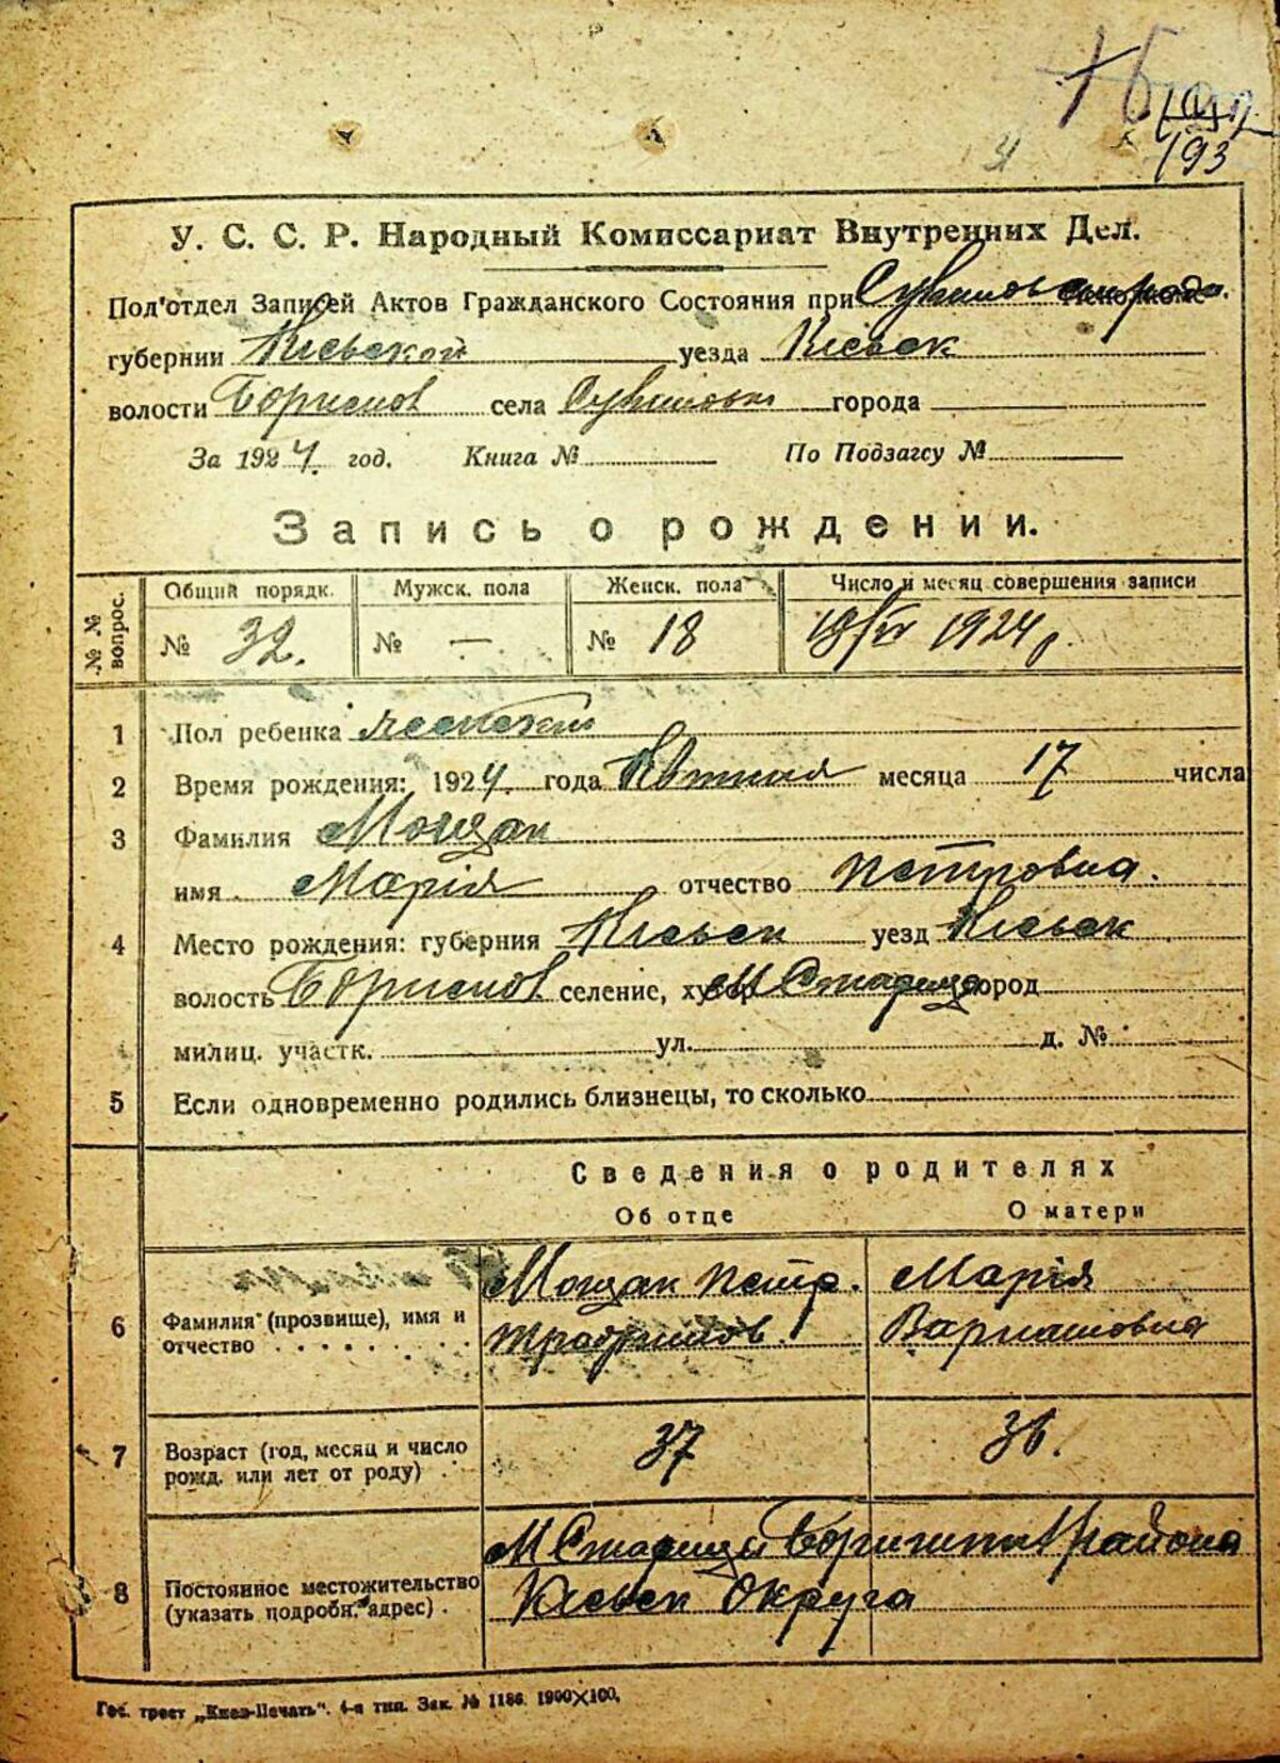 193
У. С. С. Р. Народный Комиссариат Внутренних Дел.
Под'отдел Записей Актов Гражданского Состояния при
губернии Кіевской уезда Кіевск
волости Бориспол села города
За 1924 год. Книга № По Подзагсу №
Запись о рождении.
№ № вопрос.
Общий порядк. Мужск. пола Женск. пола Число и месяц совершения записи
№ 32. № — № 18 19/IV 1924 р.
1 Пол ребенка
2 Время рождения: 1924 года Квітня месяца 17 числа
3 Фамилия Мощак
имя Марія отчество Петровна.
4 Место рождения: губерния Кіевск уезд Кіевск
волость Бориспол селение, хутор М Стариця город
милиц. участк. ул. д. №
5 Если одновременно родились близнецы, то сколько
Сведения о родителях
Об отце О матери
6 Фамилия (прозвище), имя и отчество
Мощак Петр. Марія
Варлашовна
7 Возраст (год, месяц и число рожд. или лет от роду)
37 36.
8 Постоянное местожительство (указать подробн. адрес).
М Стариця района
Кіевск Округа
Гос. трест „Киев-Печать“. 4-я тип. Зак. № 1186. 1900×100.